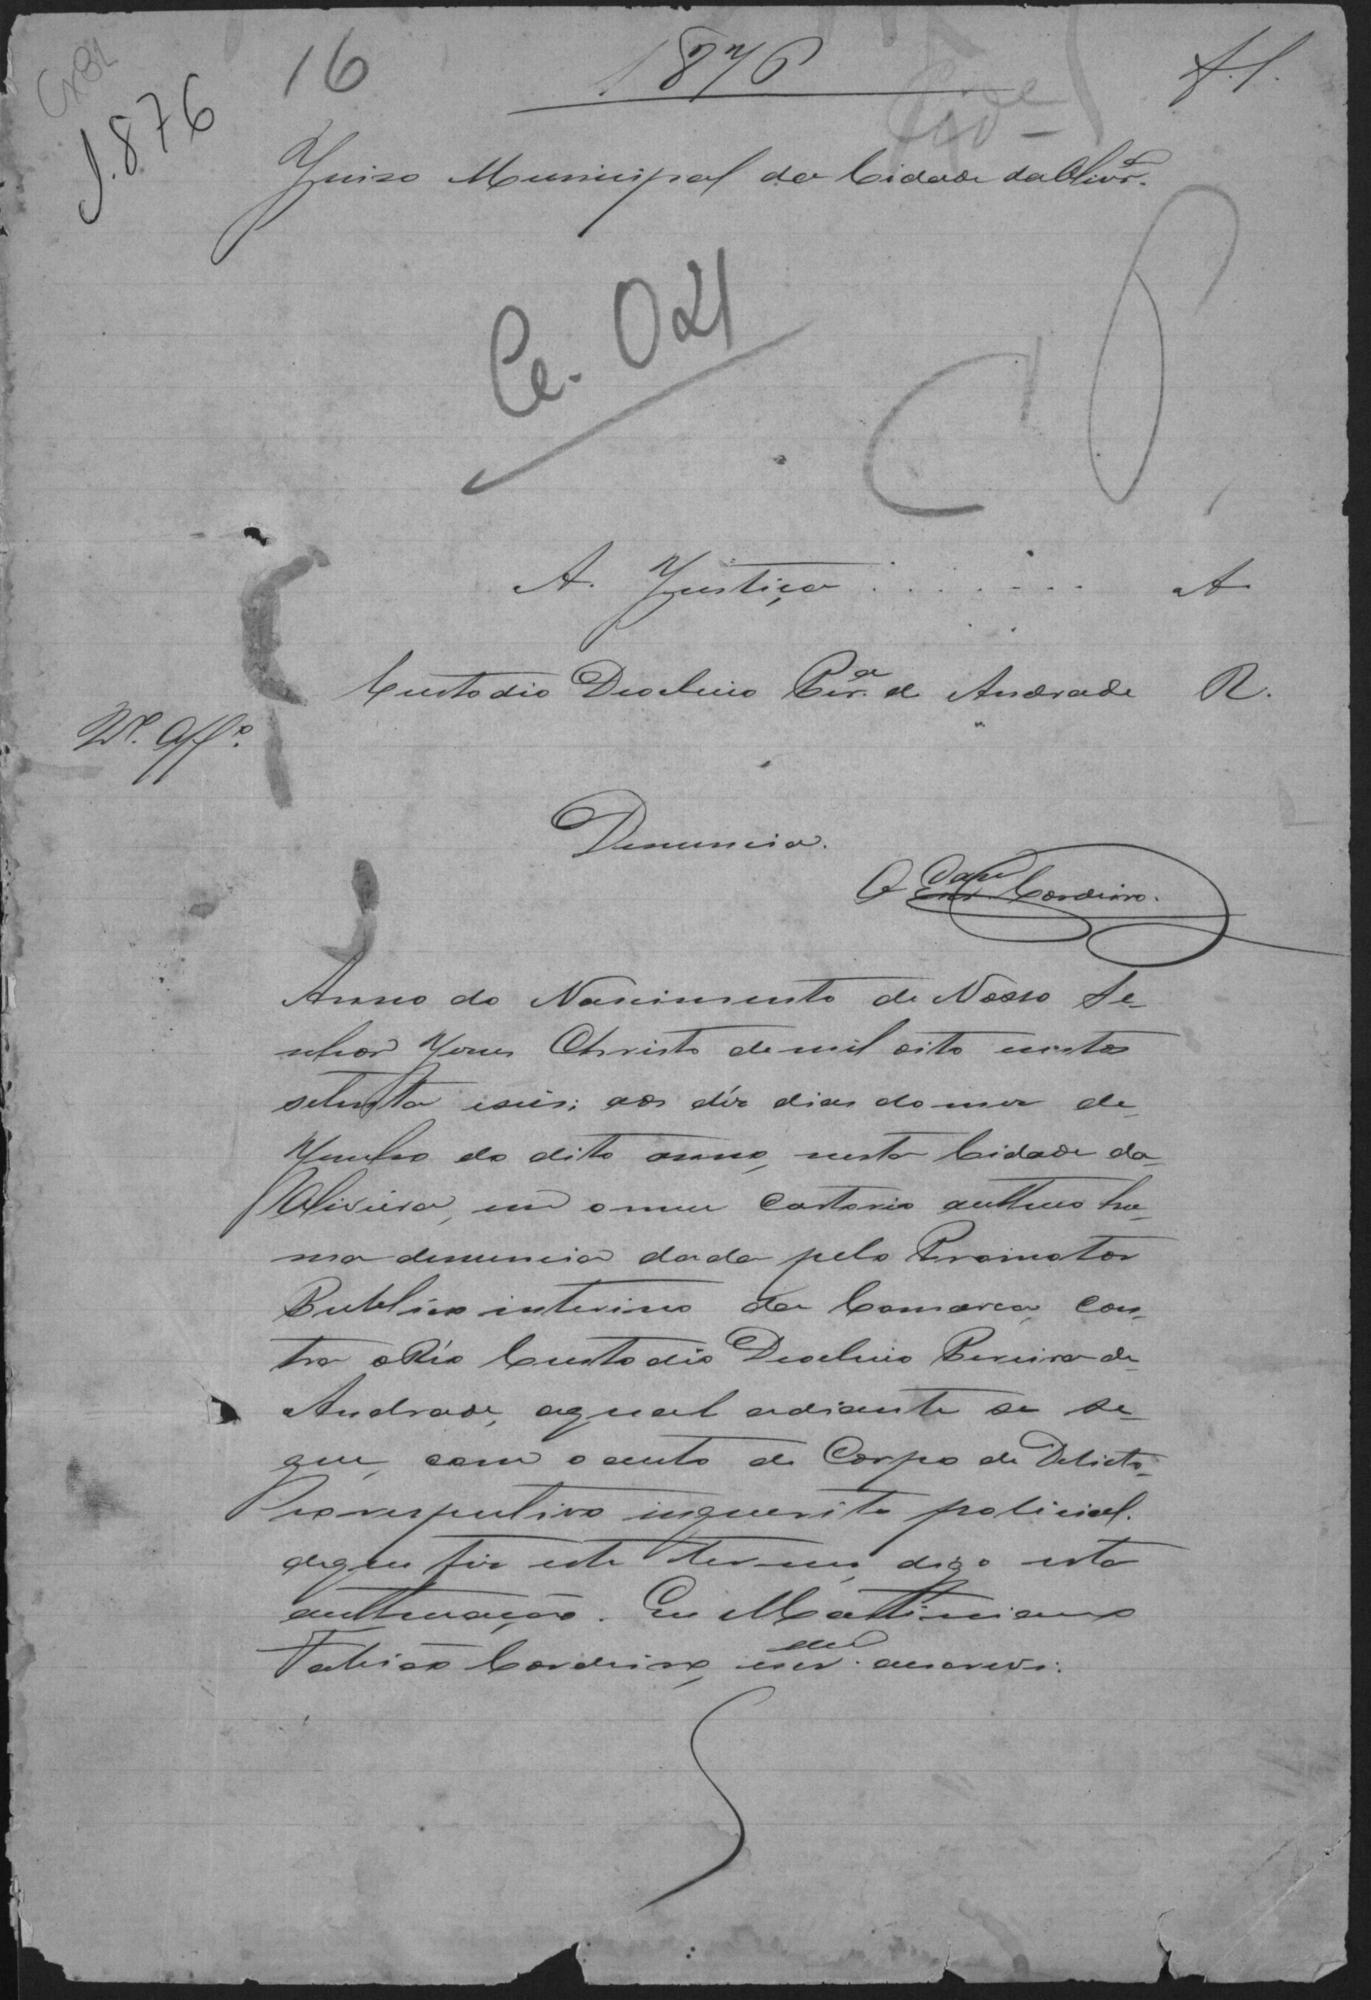 16
1876
f. 1.
1.876
Juizo Municipal da Cidade da Olivrª.
Ce. 021
A. Justiça . . . . . . . A
Custodio Deoclicio Perª. de Andrade R.
Denuncia.
O Cordeiro.
Anno do Nascimento de Nosso Se-
nhor Jesus Christo de mil oito centos
setenta e seis; aos déz dias do mez de
Junho do dito anno, nesta Cidade da
Oliveira, em o meu Cartorio authuo hu-
ma denuncia dada pelo Promotor
Publico interino da Comarca, con-
tra o Réo Custodio Deoclicio Pereira de
Andrade, a qual adiante se se-
gue, com o auto de Corpo de Delicto,
e o respectivo inquerito policial.
de que fiz este termo, digo esta
authuação. Eu Martiniano
Fabião Cordeiro, escr. a escrevi.